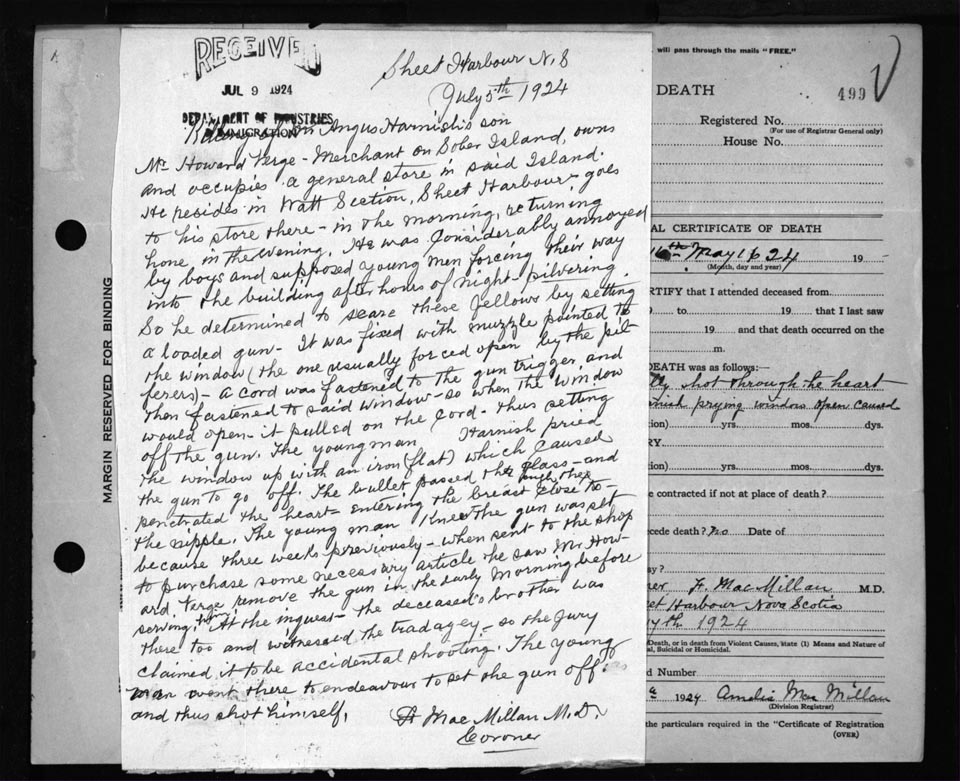 RECEIVED
JUL 9 1924
DEPARTMENT OF INDUSTRIES
& IMMIGRATION
Sheet Harbour N.S
July 5th 1924
Angus Harnish's son
Mr Howard Verge - Merchant on Sober Island, owns
and occupies a general store in said Island.
He resides in Watt Section, Sheet Harbour, goes
to his store there - in the morning, returning
home in the evening. He was considerably annoyed
by boys and supposed young men forcing their way
into the building after hours of night - pilvering.
So he determined to scare these fellows by setting
a loaded gun - It was fixed with muzzle pointed to
the window (the one usually forced open by the pil
ferers) - a cord was fastened to the gun trigger and
then fastened to said window - so when the window
would open - it pulled on the cord - thus setting
off the gun. The young man Harnish pried
the window up with an iron (flat) which caused
the gun to go off. The bullet passed through the glass - and
penetrated the heart - entering the breast close to -
the nipple. The young man knew the gun was set
because three weeks previously - when sent to the shop
to purchase some necessary article he saw Mr How-
ard Verge remove the gun in the early morning before
serving him. At the inquest - the deceased's brother was
there too and witnessed the tradagey - so the Jury
claimed it to be accidental shooting. The young
man went there to endeavour to set the gun off
and thus shot himself.
MacMillan M.D.
Coroner
MARGIN RESERVED FOR BINDING
will pass through the mails "FREE."
DEATH
499
Registered No.
(For use of Registrar General only)
House No.
AL CERTIFICATE OF DEATH
16th May 1924 19
(Month, day and year)
ERTIFY that I attended deceased from
to 19 that I last saw
19 and that death occurred on the
m.
DEATH was as follows:—
shot through the heart
prying window open caused
tion) yrs. mos. dys.
RY
tion) yrs. mos. dys.
e contracted if not at place of death?
cede death? no Date of
sy?
MacMillan M.D.
et Harbour Nova Scotia
7th 1924
Death, or in death from Violent Causes, state (1) Means and Nature of
al, Suicidal or Homicidal.
d Number
1924 MacMillan
(Division Registrar)
the particulars required in the "Certificate of Registration
(OVER)